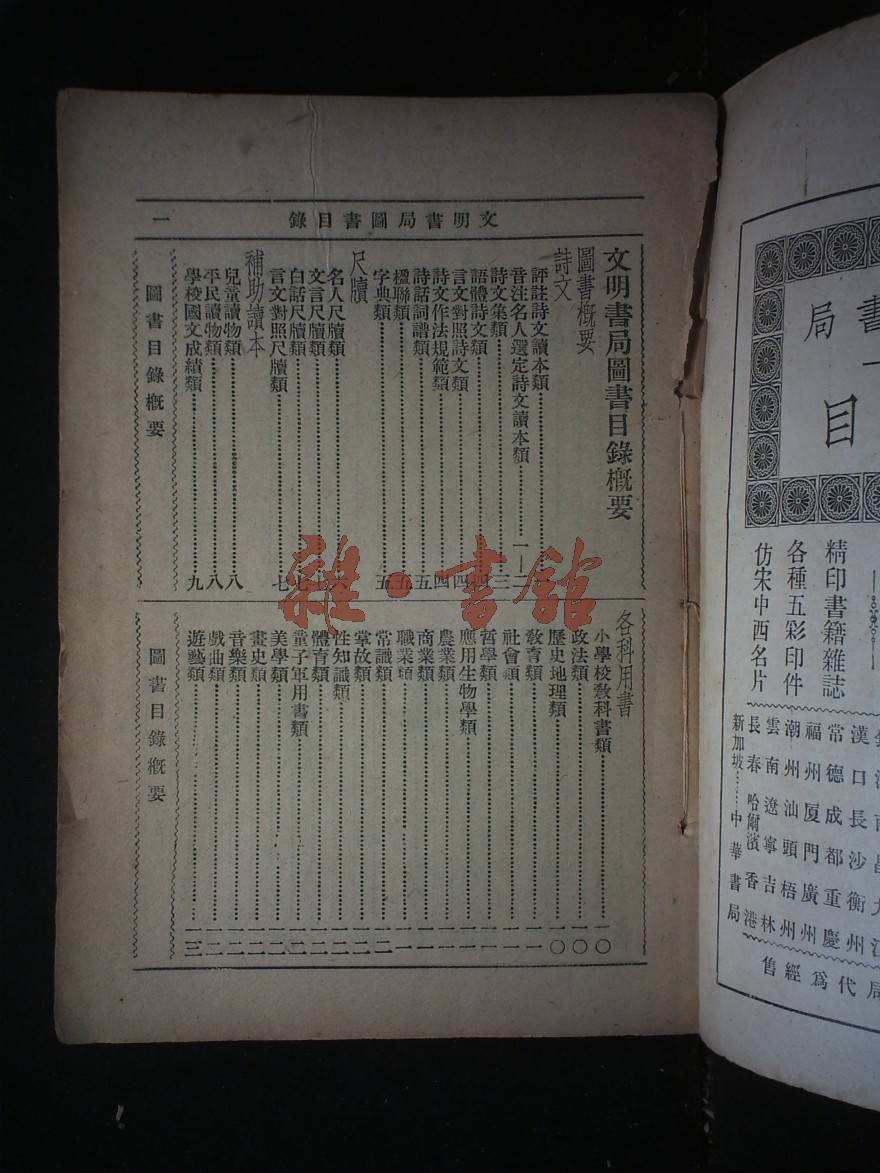 文明書局圖書目錄　一
文明書局圖書目錄概要
圖書概要
詩文
評註詩文讀本類
音注名人選定詩文讀本類……一—二
詩文集類……三
語體詩文類……四
言文對照詩文類……四
詩文作法規範類……四
詩話詞譜類……五
楹聯類……五
字典類……五
尺牘
名人尺牘類……六
文言尺牘類……七
白話尺牘類……七
言文對照尺牘類……七
補助讀本
兒童讀物類……八
平民讀物類……八
學校國文成績類……九
圖書目錄概要
各科用書
小學校教科書類……一〇
政法類……一〇
歷史地理類……一〇
教育類……一一
社會類……一一
哲學類……一一
應用生物學類……一一
農業類……一一
商業類……一一
職業類……一一
常識類……一二
掌故類……一二
性知識類……一二
體育類……一二
童子軍用書類……一二
美學類……一二
畫史類……一二
音樂類……一二
戲曲類……一二
遊藝類……一三
圖書目錄概要
雜·書館
書
局
目
精印書籍雜誌
各種五彩印件
仿宋中西名片
漢口長沙衡州
常德成都重慶
福州厦門廣州
潮州汕頭梧州
雲南遼寧吉林
長春哈爾濱香港
新加坡……中華書局
局代爲經售